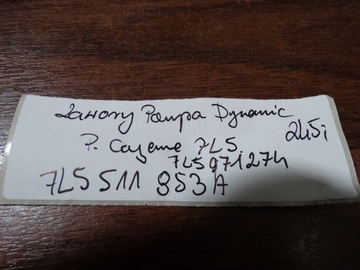 Zawory Pompa Dynamic
P. Cayenne 7L5 245i
7L5971274
7L5 511 853A